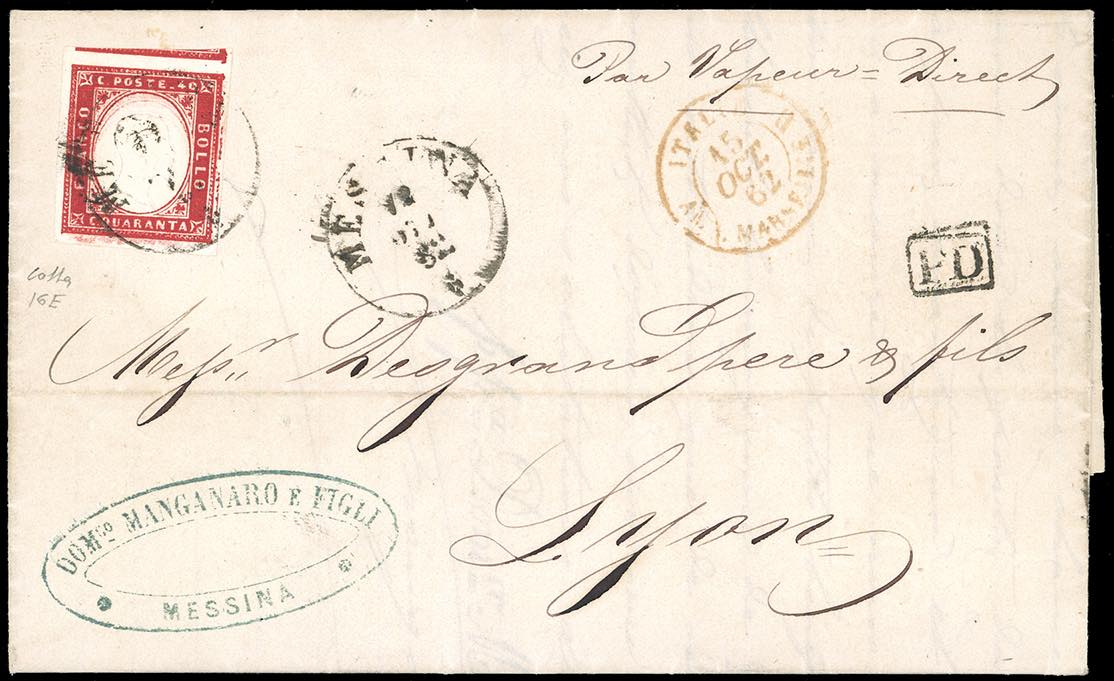 Par Vapeur = Direct
C. POSTE. 40
BOLLO
QUARANTA
MESSINA
ITALIE
15
OCT.
62
MARSEILLE
PD
colla
16E
Mess.rs Desgrand pere & fils
Lyon =
DOM.CO MANGANARO E FIGLI
MESSINA